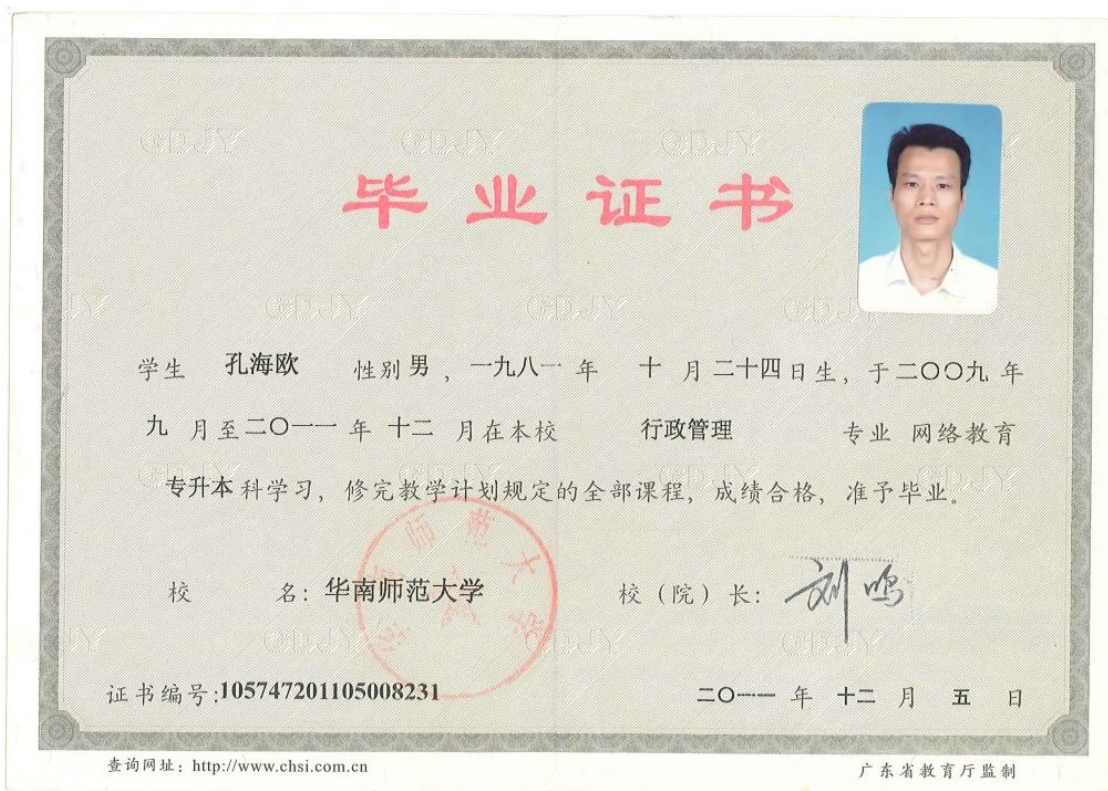 毕业证书
学生 孔海欧 性别 男 , 一九八一 年 十 月 二十四 日生, 于 二〇〇九 年
九 月至 二〇一一 年 十二 月在本校 行政管理 专业 网络教育
专升本 科学习, 修完教学计划规定的全部课程, 成绩合格, 准予毕业。
校 名: 华南师范大学 校（院）长: 刘鸣
华南师范大学
证书编号:105747201105008231 二〇一一 年 十二 月 五 日
查询网址: http://www.chsi.com.cn 广东省教育厅监制
GDJY GDJY GDJY
GDJY GDJY GDJY